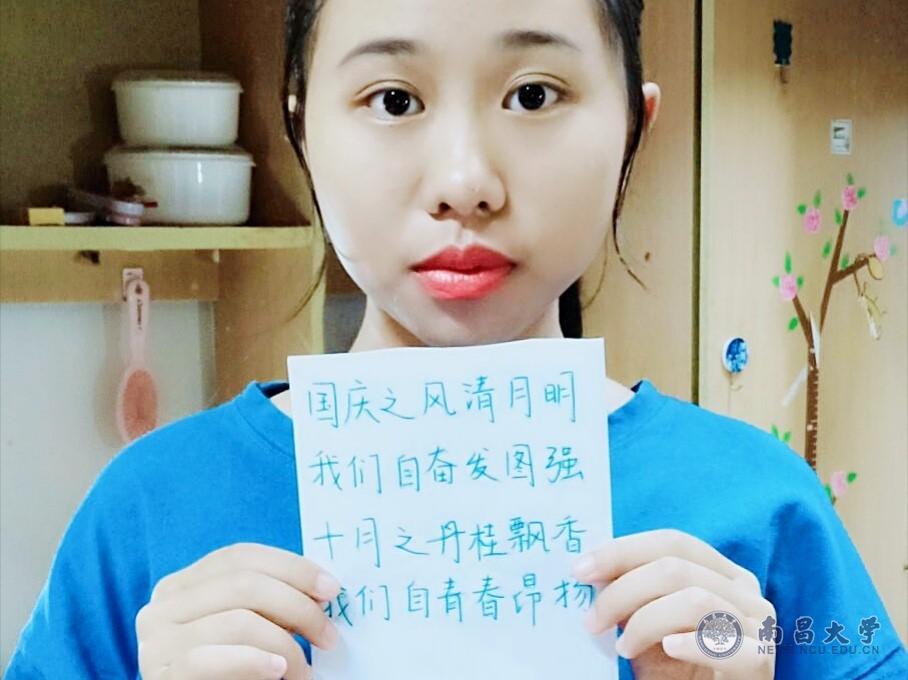 国庆之风清月明
我们自奋发图强
十月之丹桂飘香
我们自青春昂扬
南昌大学
NEWS.NCU.EDU.CN